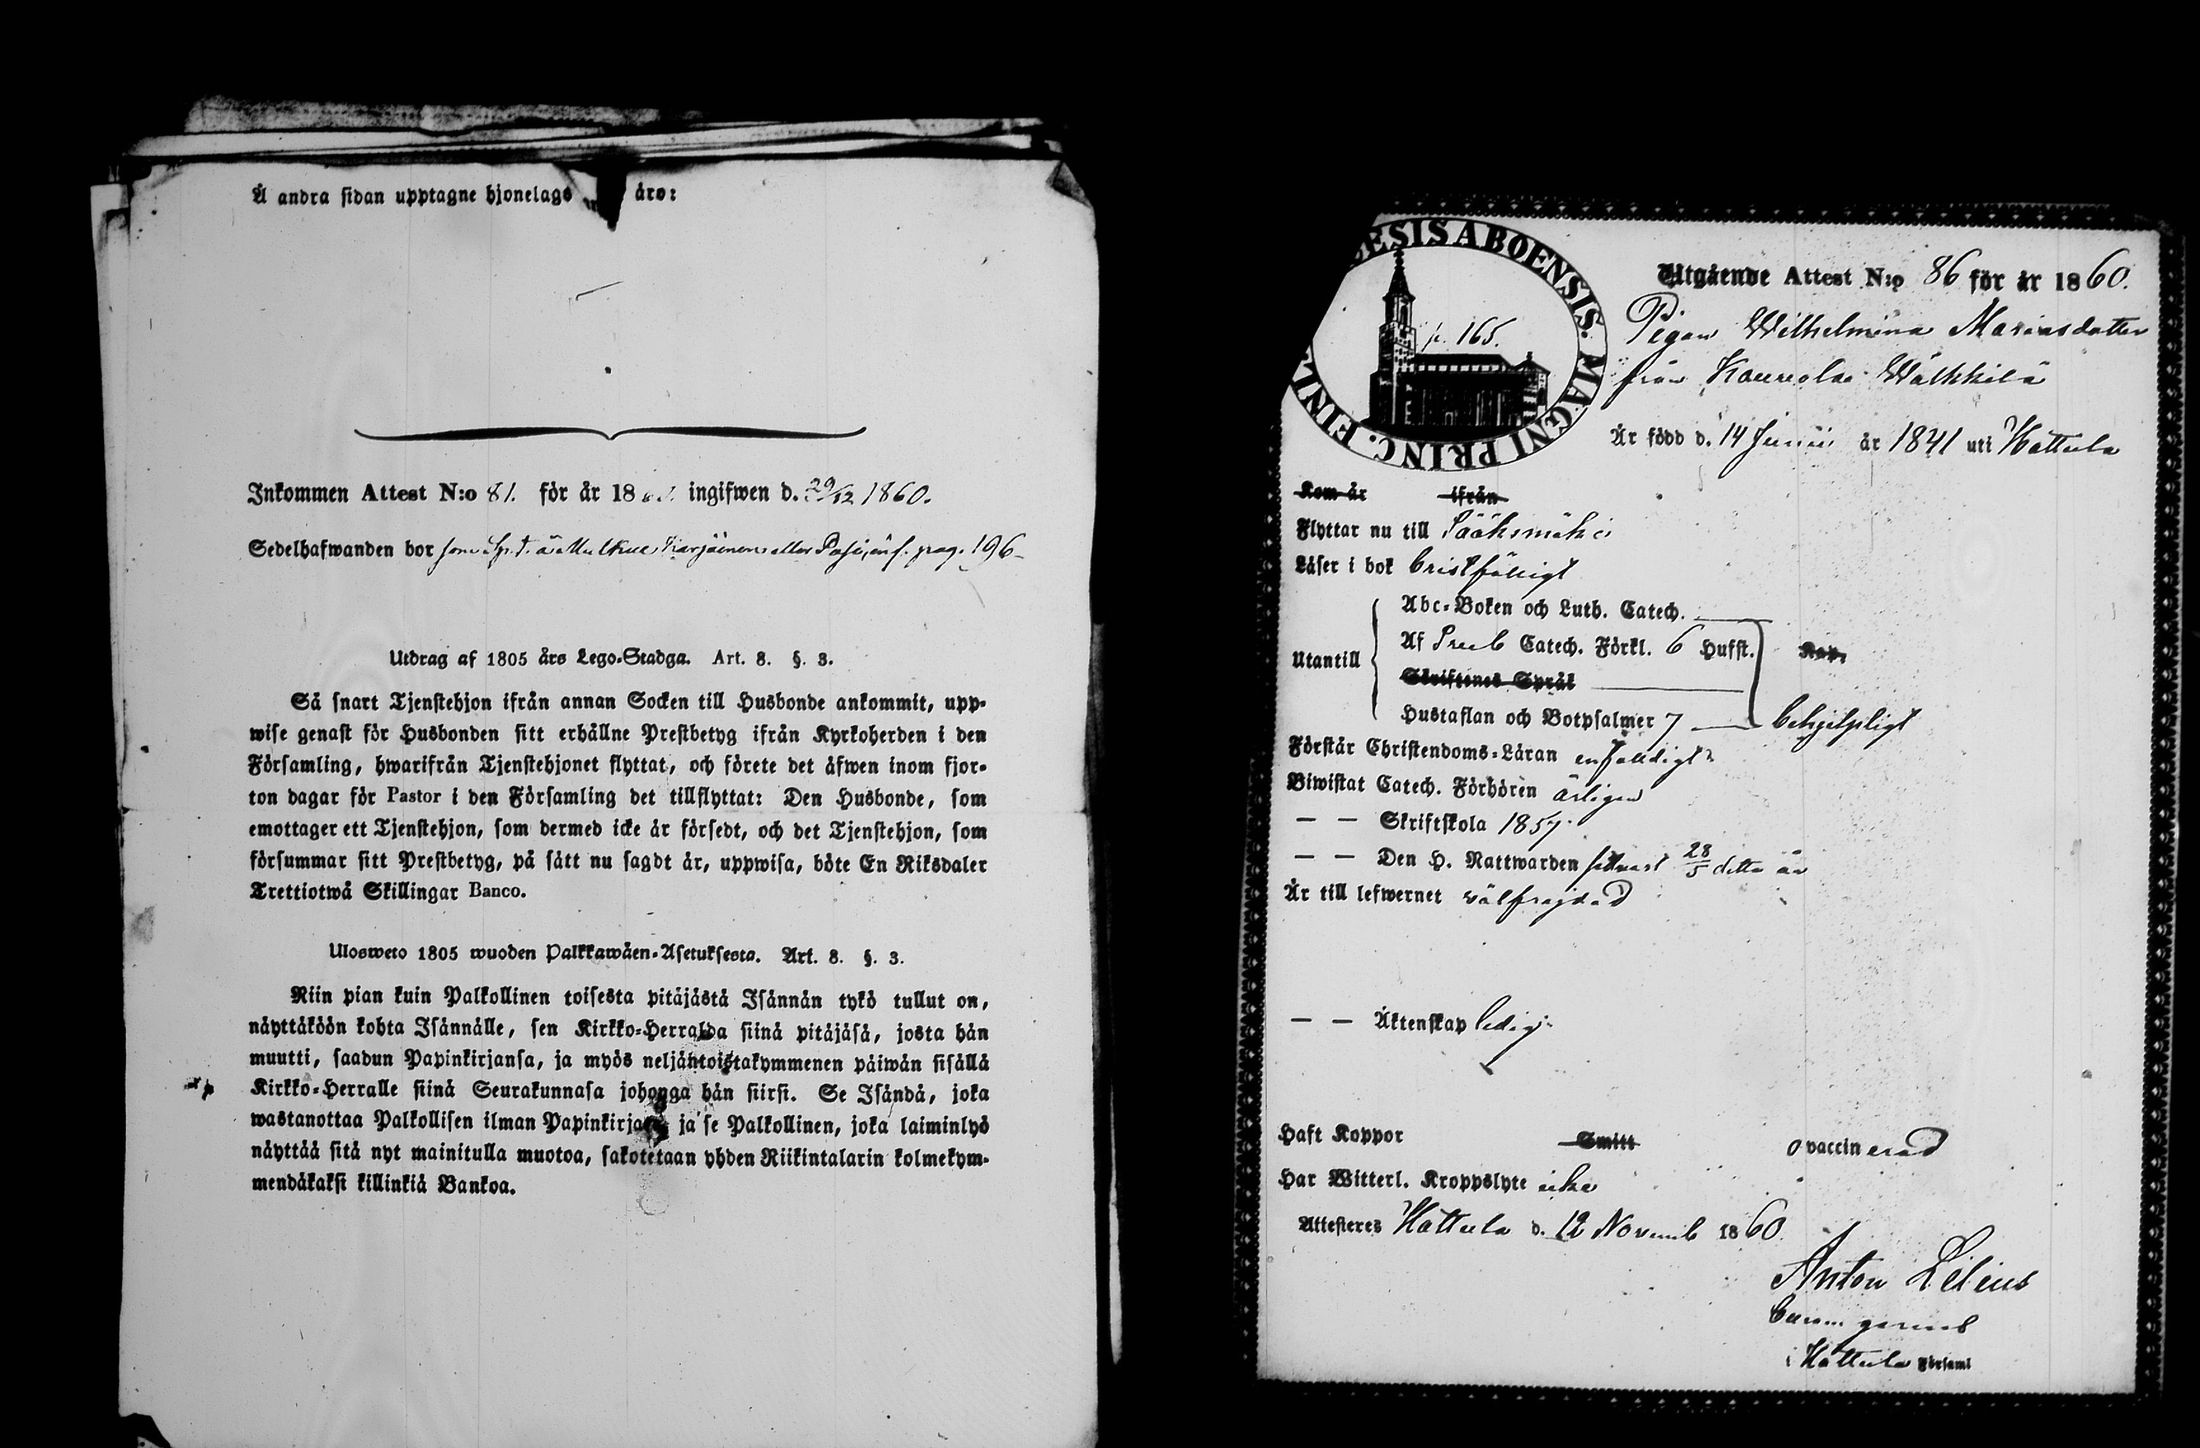 Å andra sidan upptagne hjonelags äro:
Inkommen Attest N:o 81. för år 18 ingifwen d. 29/12 1860.
Sedelhafwanden bor som pag. 196
Utdrag af 1805 års Lego-Stadga. Art. 8. §. 3.
Så snart Tjenstehjon ifrån annan Socken till Husbonde ankommit, upp-
wise genast för Husbonden sitt erhållne Prestbetyg ifrån Kyrkoherden i den
Församling, hwarifrån Tjenstehjonet flyttat, och förete det äfwen inom fjor-
ton dagar för Pastor i den Församling det tillflyttat: Den Husbonde, som
emottager ett Tjenstehjon, som dermed icke är försedt, och det Tjenstehjon, som
försummar sitt Prestbetyg, på sätt nu sagdt är, uppwisa, böte En Riksdaler
Trettiotwå Skillingar Banco.
Ulosweto 1805 wuoden Palkkawäen-Asetuksesta. Art. 8. §. 3.
Niin pian kuin Palkollinen toisesta pitäjästä Isännän tykö tullut on,
näyttäköön kohta Isännälle, sen Kirkko-Herralda siinä pitäjäsä, josta hän
muutti, saadun Papinkirjansa, ja myös neljäntoistakymmenen päiwän sisällä
Kirkko-Herralle siinä Seurakunnasa johonga hän siirsi. Se Isändä, joka
wastanottaa Palkollisen ilman Papinkirjata ja se Palkollinen, joka laiminlyö
näyttää sitä nyt mainitulla muotoa, sakotetaan yhden Riikintalarin kolmekym-
mendäkaksi killinkiä Bankoa.
ESIS ABOENSIS. MAGNI PRINC. FINL
p. 165.
Utgående Attest N:o 86 för år 1860.
Pigan Wilhelmina Mariasdotter
från Kouvola Wälkkilä
Är född d. 14 Junii år 1841 uti Hattula
Kom år ifrån
Flyttar nu till Sääksmäki
Läser i bok bristfälligt
Utantill
Abc-Boken och Luth. Catech.
Af Sveb Catech. Förkl. 6 Hufst. Kap.
Skriftenes Språk
Hustaflan och Botpsalmer 7 behjelpligt
Förstår Christendoms-Läran enfalldigt
Biwistat Catech. Förhören årligen
— — Skriftskola 1857.
— — Den H. Nattwarden sednast 28/5 detta år
Är till lefwernet välfrejdad
— — Äktenskap ledig.
Haft Koppor Smitt ovaccinerad
Har Witterl. Kroppslyte icke
Attesteres Hattula d. 12 Novemb 1860.
Anton Lilius
i Hattula Församl